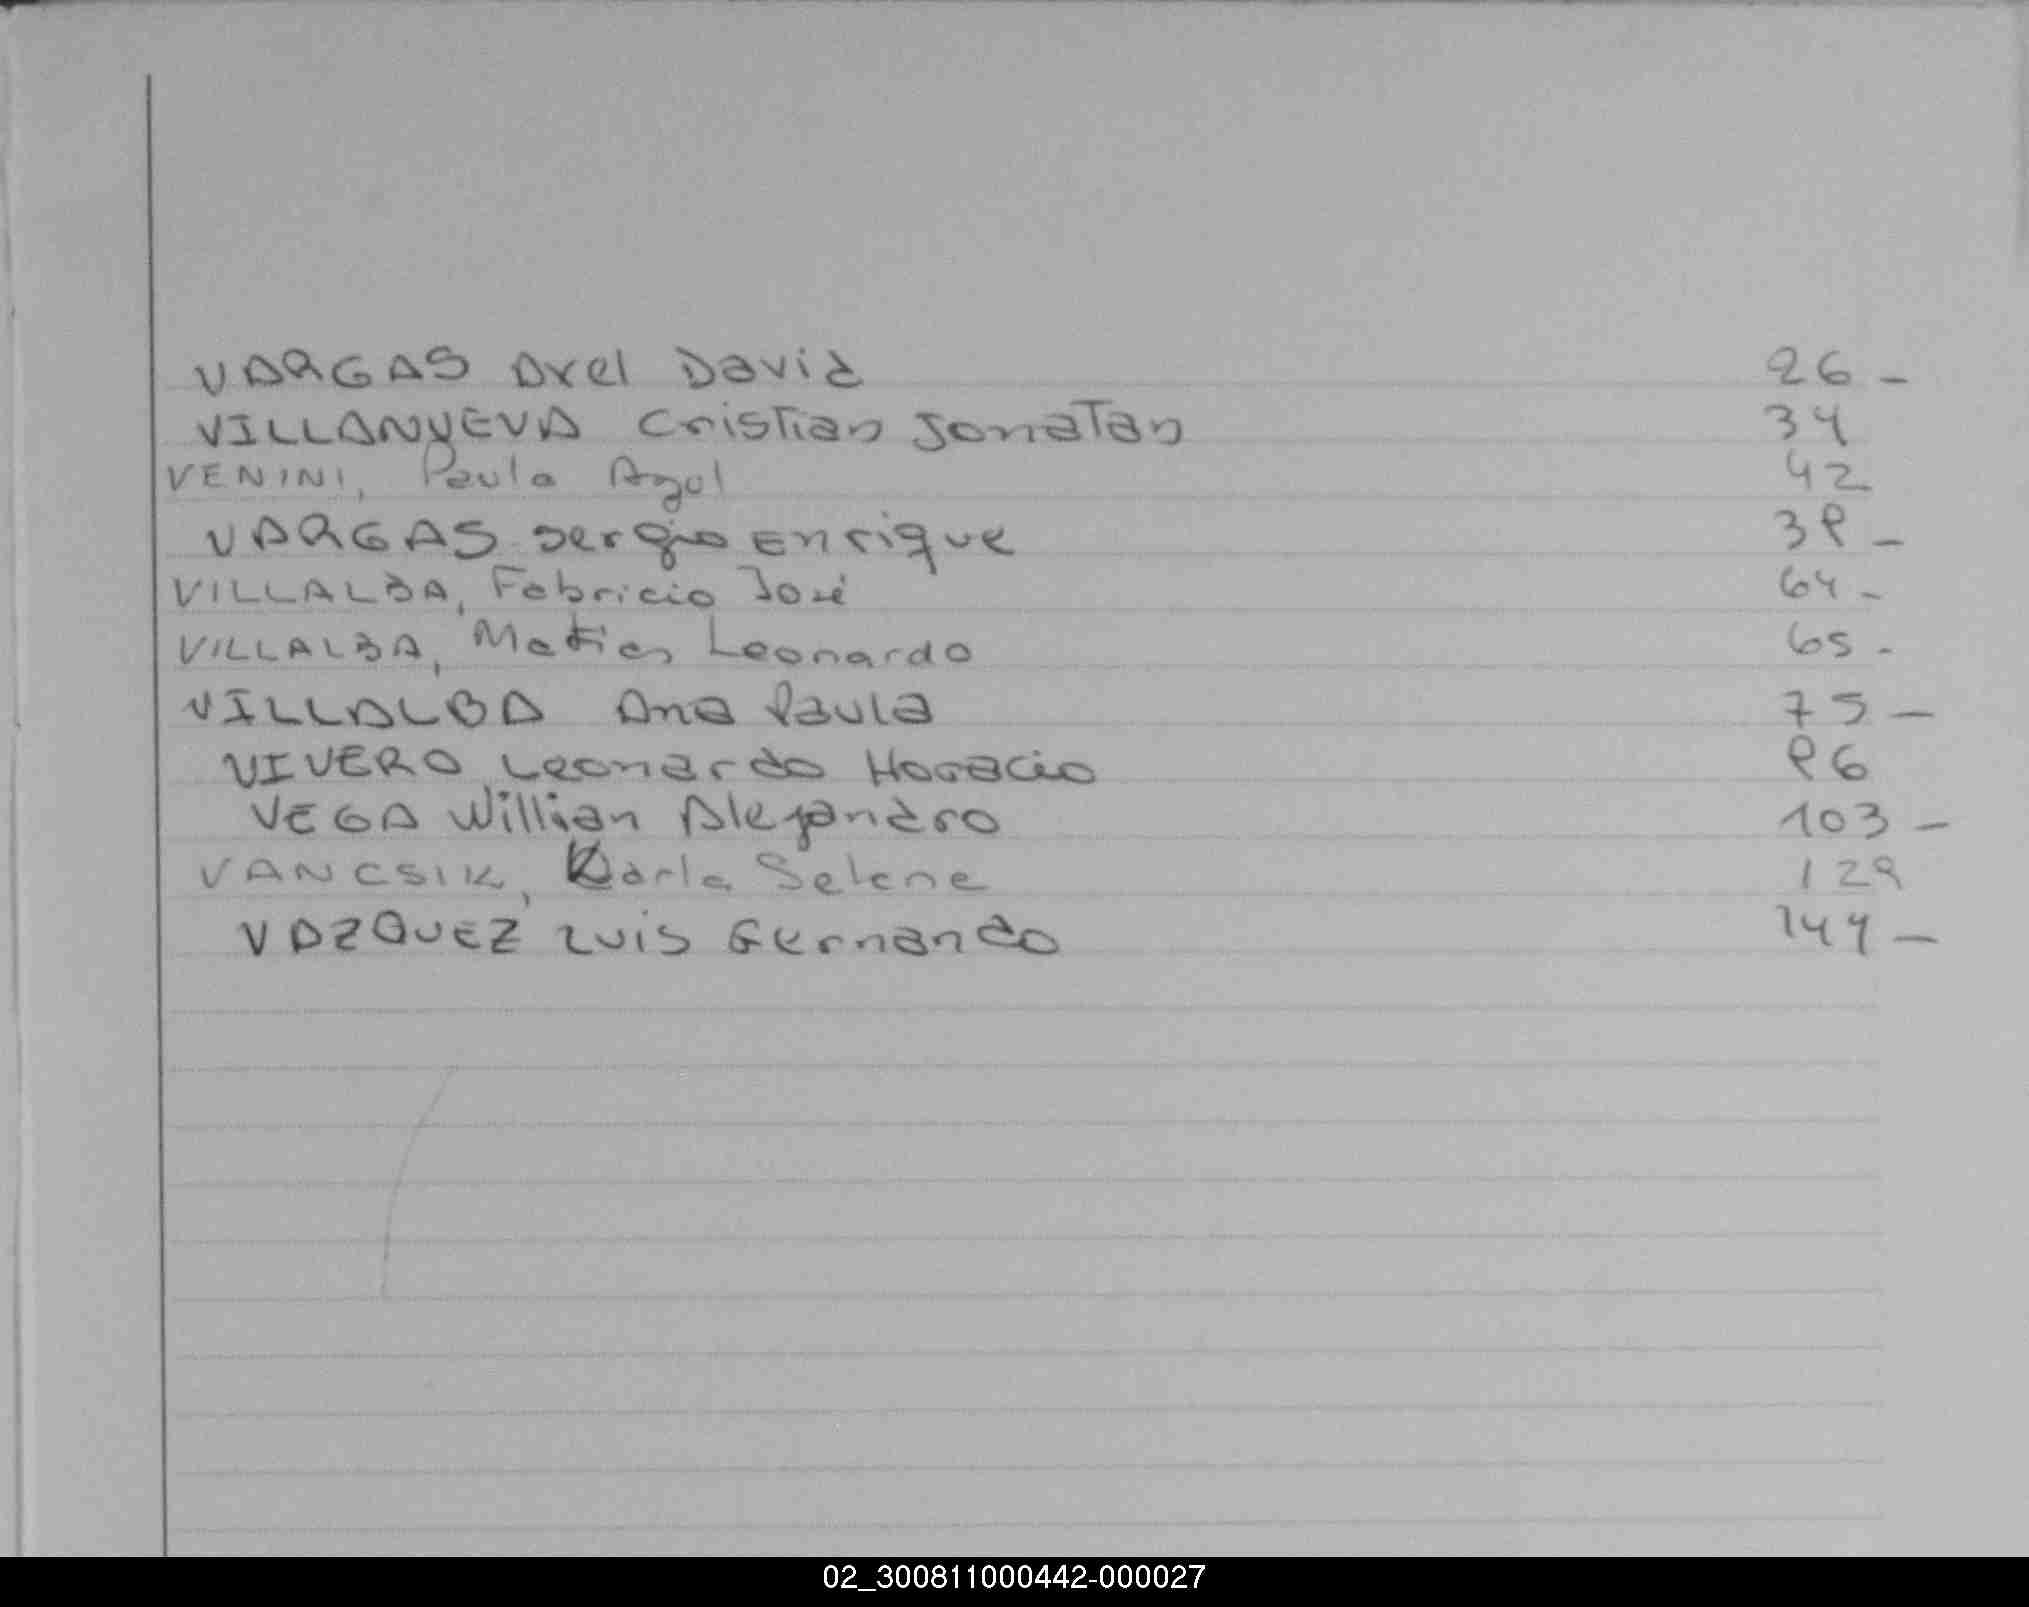 VARGAS Axel David 26 -
VILLANUEVA Cristian Jonatan 34
VENINI, Paula Azul 42
VARGAS Sergio Enrique 38 -
VILLALBA, Fabricio José 64 -
VILLALBA, Matias Leonardo 65 -
VILLALBA Ana Paula 75 -
VIVERO Leonardo Horacio 86
VEGA Willian Alejandro 103 -
VANCSIK, Karla Selene 129
VAZQUEZ Luis Gernando 144 -
02_300811000442-000027